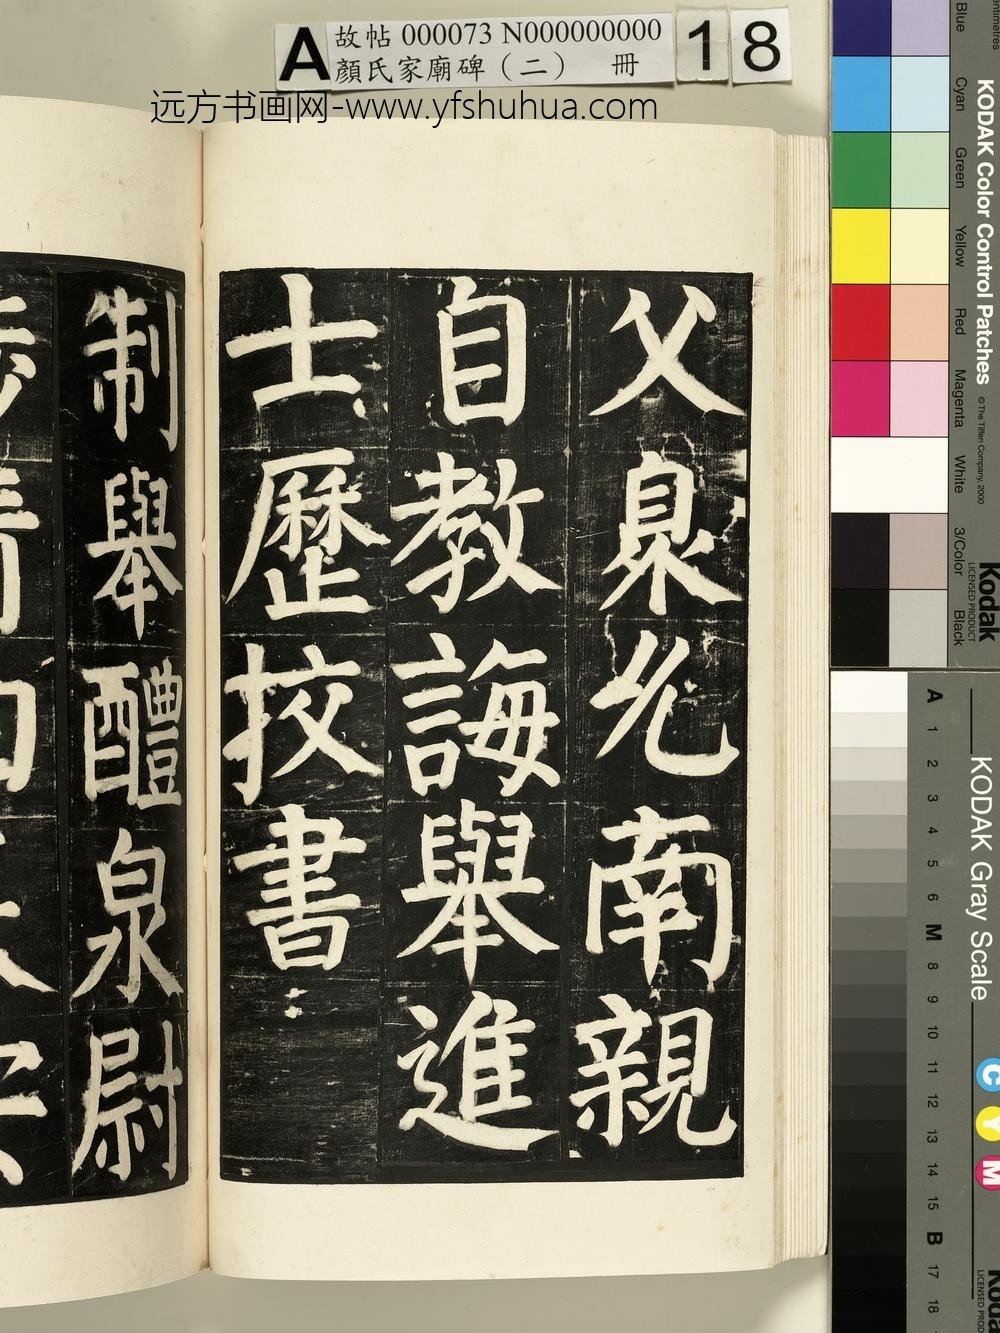 A 故帖 000073 N000000000 18
顏氏家廟碑（二） 冊
远方书画网-www.yfshuhua.com
父臮允南親
自教誨舉進
士歷挍書
制舉醴泉尉
KODAK Color Control Patches © The Tiffen Company, 2000
Kodak
LICENSED PRODUCT
Blue
Cyan
Green
Yellow
Red
Magenta
White
3/Color
Black
KODAK Gray Scale
A 1 2 3 4 5 6 M 8 9 10 11 12 13 14 15 B 17 18
C Y M